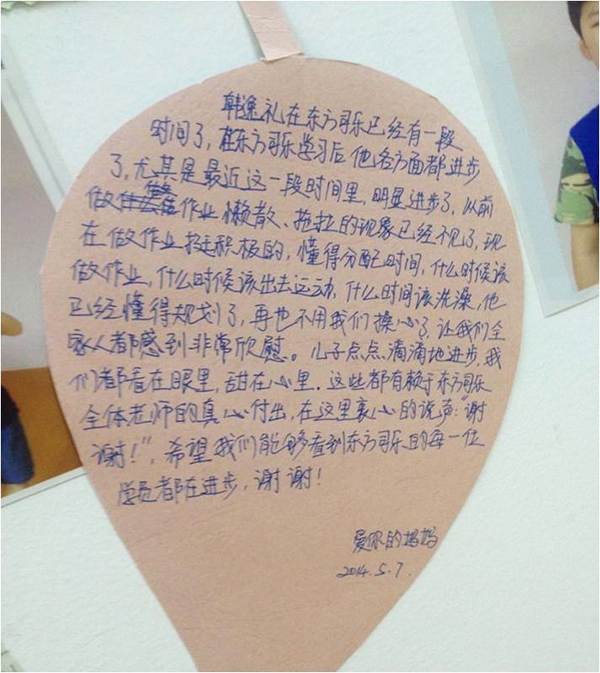 韩逸礼在东方哥乐已经有一段
时间了，在东方哥乐学习后他各方面都进步
了，尤其是最近这一段时间里，明显进步了，从前
做作业懒散、拖拉的现象已经不见了，现
在做作业挺积极的，懂得分配时间，什么时候该
做作业，什么时候该出去运动，什么时间该洗澡，他
已经懂得规划了，再也不用我们操心了，让我们全
家人都感到非常欣慰。儿子点点滴滴地进步，我
们都看在眼里，甜在心里．这些都有赖于东方哥乐
全体老师的真心付出，在这里衷心的说声："谢
谢！"，希望我们能够看到东方哥乐的每一位
学员都在进步，谢谢！
爱你的妈妈
2014.5.7.